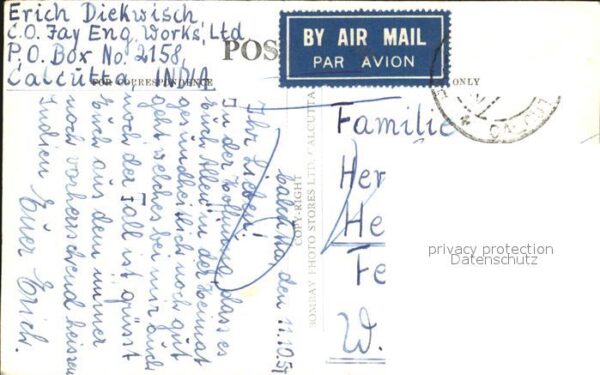 Erich Diekwisch,
C.O. Jay Eng. Works, Ltd
P.O. Box No. 2158,
Calcutta, INDIA
POS
BY AIR MAIL
PAR AVION
FOR CORRESPONDENCE
ONLY
CALCUT
Calcutta, den 11.10.5
Ihr Lieben!
In der Hoffnung, dass es
Euch Allen in der Heimat
gesundheitlich noch gut
geht welches bei mir auch
noch der Fall ist grüsst
Euch aus dem immer
noch vorherrschend heissen
Indien Euer Erich.
COPY-RIGHT
BOMBAY PHOTO STORES LTD. CALCUTTA
Familie
Her
He
Fe
W.
privacy protection
Datenschutz